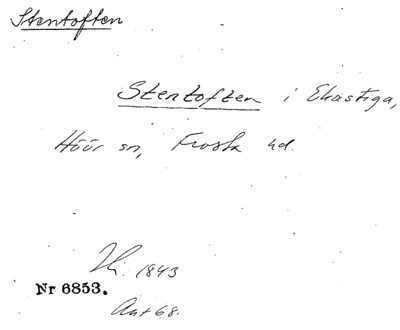 Stentoften
Stentoften i Ekastiga,
Höör sn, Frosta hd.
1843
Nr 6853.
Ant 68.